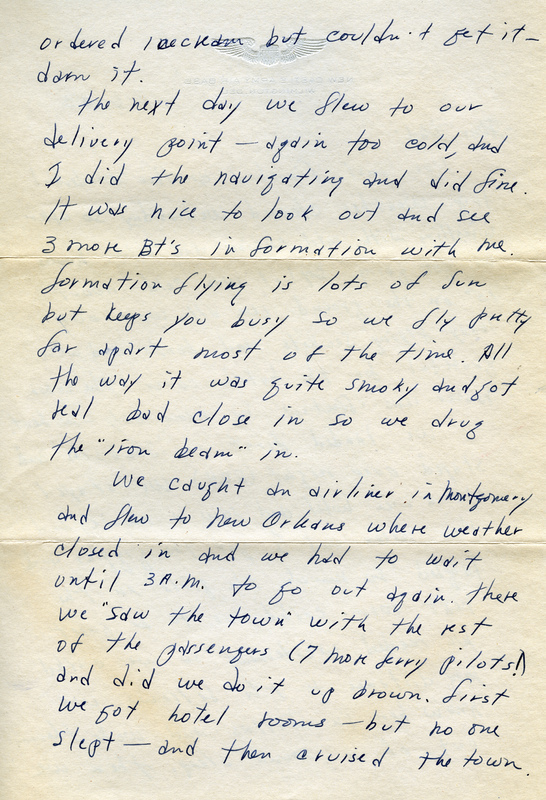 ordered icecream but couldn't get it –
darn it.
The next day we flew to our
delivery point – again too cold, and
I did the navigating and did fine.
It was nice to look out and see
3 more Bt's in formation with me.
formation flying is lots of fun
but keeps you busy so we fly pretty
far apart most of the time. All
the way it was quite smoky and got
real bad close in so we drug
the "iron beam" in.
We caught an airliner in Montgomery
and flew to New Orleans where weather
closed in and we had to wait
until 3 A.M. to go out again. There
we "saw the town" with the rest
of the passengers (7 more ferry pilots!)
and did we do it up brown. first
we got hotel rooms – but no one
slept – and then cruised the town.